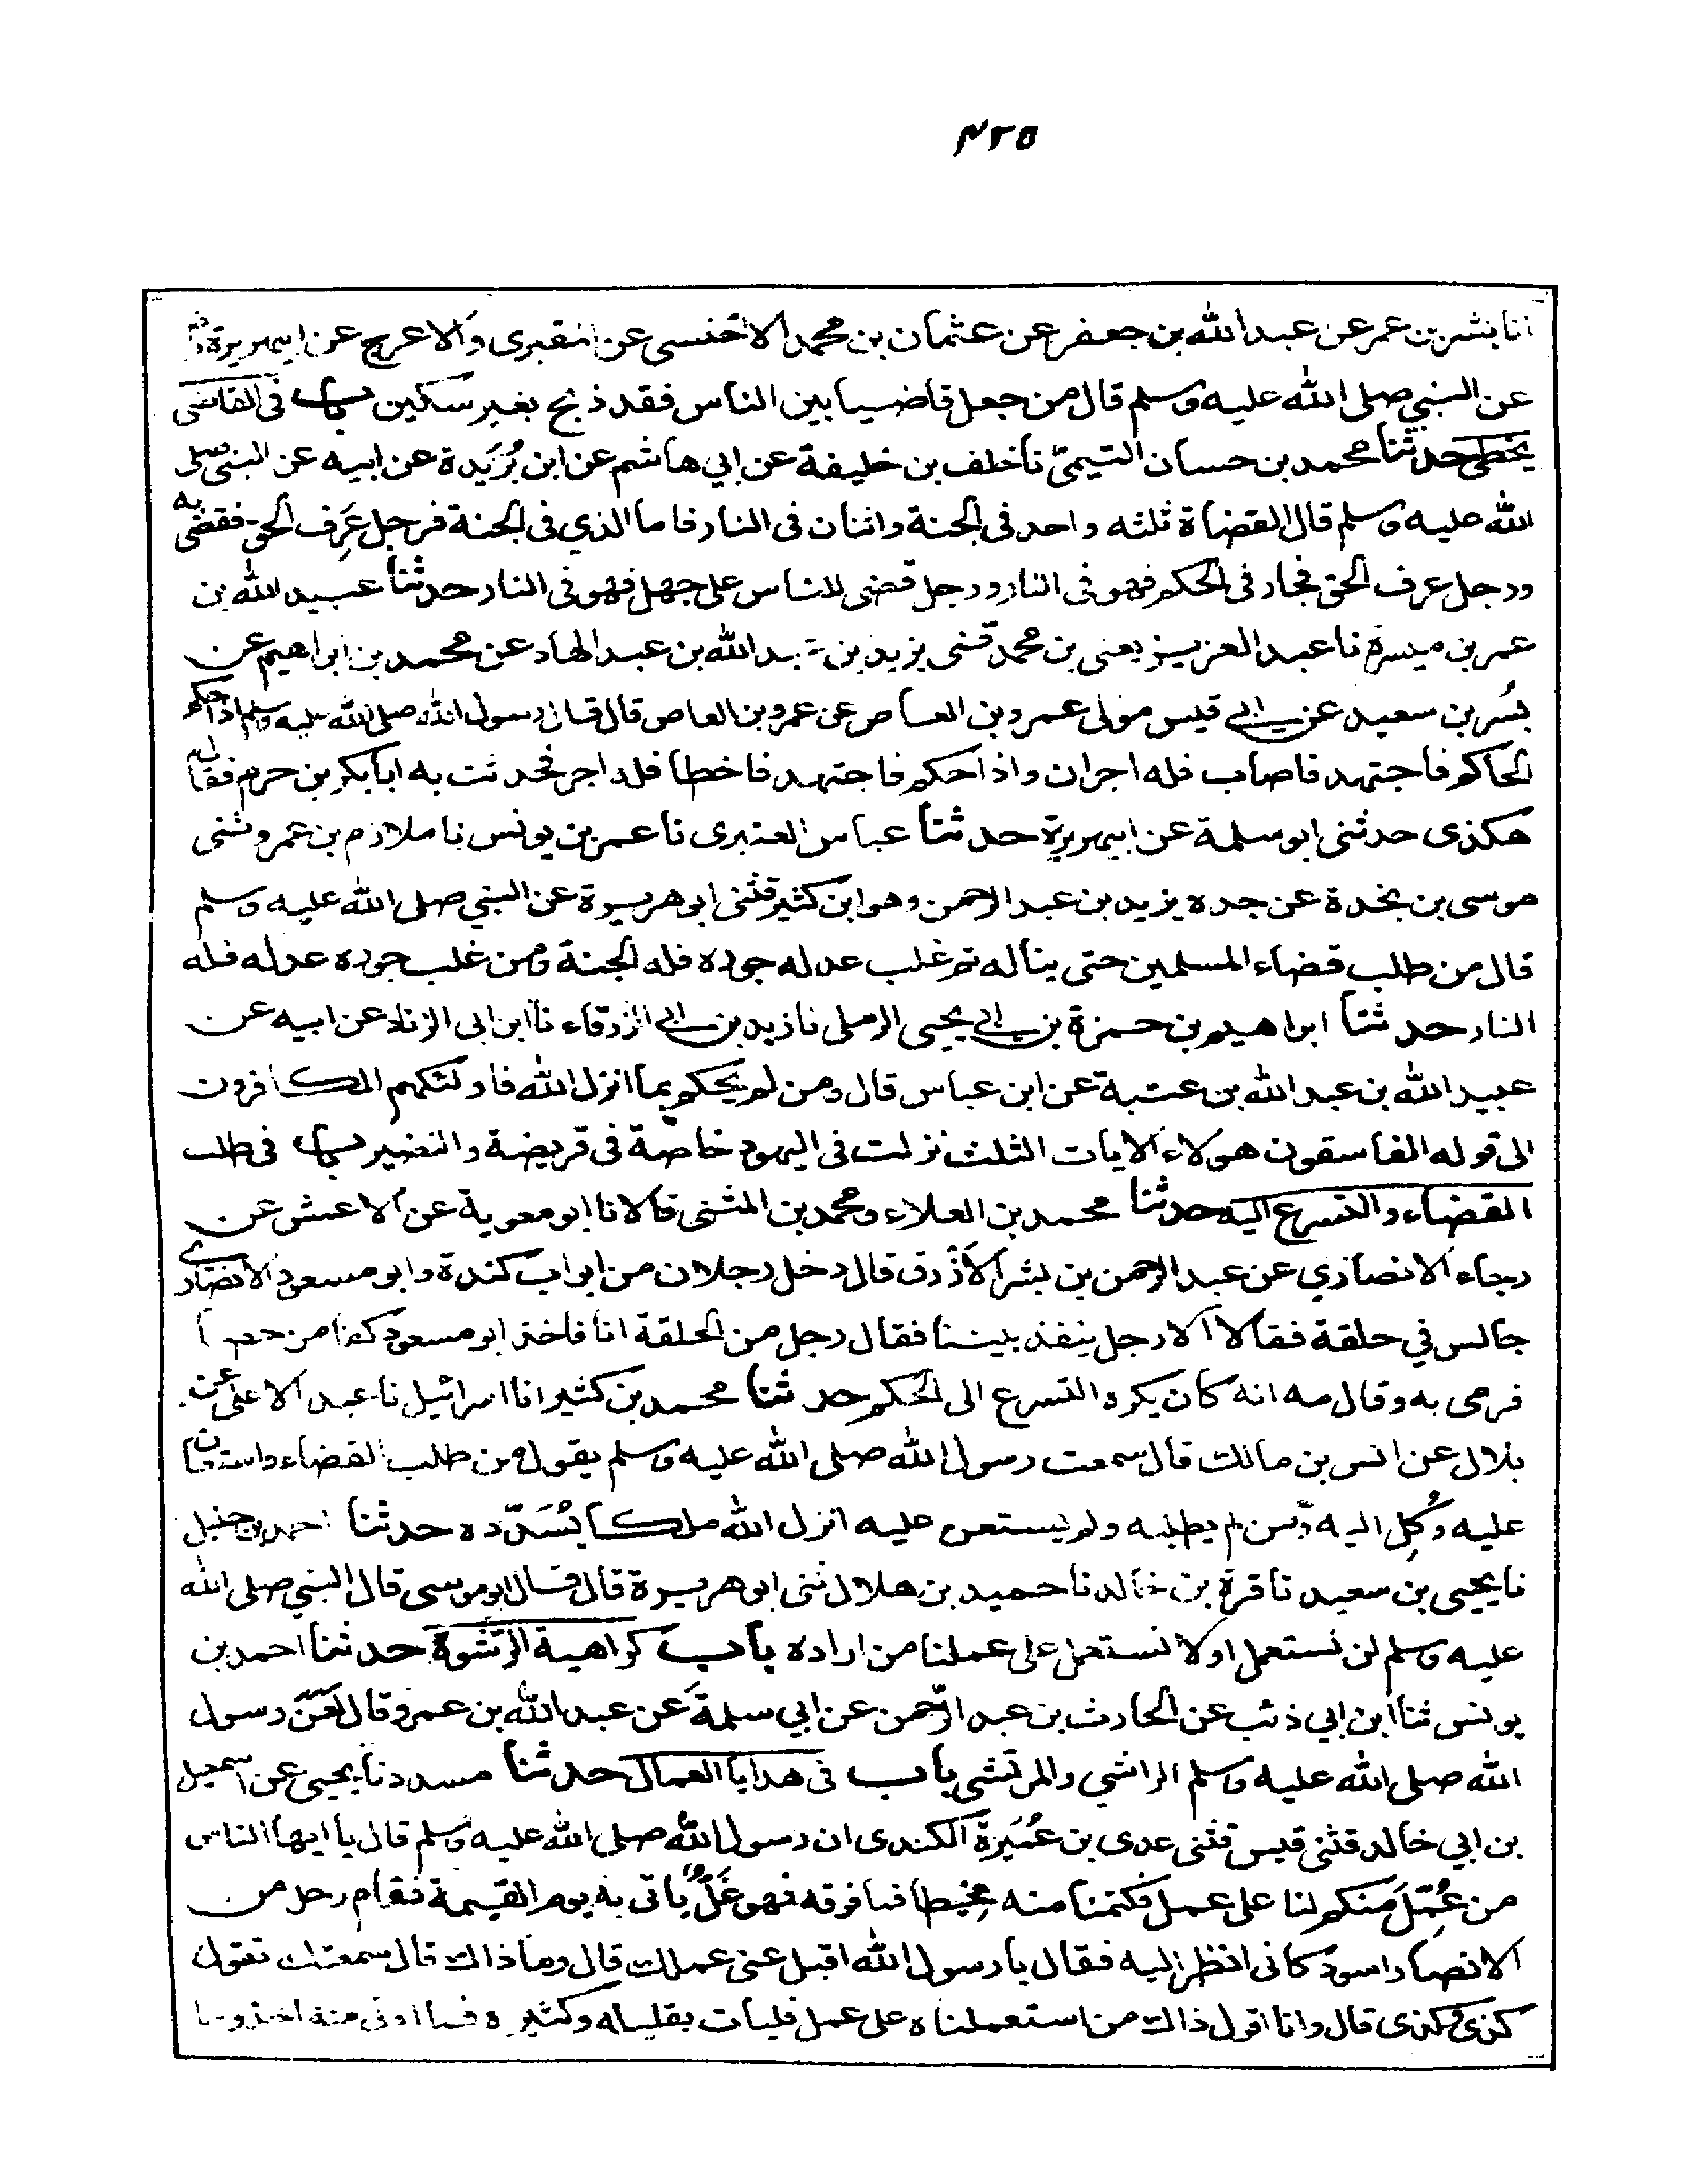 ٤٢٥
انا بشر بن عمر عن عبد الله بن جعفر عن عثمان بن محمد الاخنسى عن المقبرى والاعرج عن ابيهريرة
عن النبي صلى الله عليه وسلم قال من جعل قاضيا بين الناس فقد ذبح بغير سكين باب فى القاضى
يخطى حدثنا محمد بن حسان التيمىّ نا خلف بن خليفة عن ابي هاشم عن ابن بُرَيدة عن ابيه عن النبى صلى
الله عليه وسلم قال القضاة ثلثه واحد فى الجنة واثنان فى النار فاما الذي فى الجنة فرجل عَرِف الحق فقضى به
ورجل عرف الحق فجار فى الحكم فهو فى النار ورجل قضى للناس على جهل فهو فى النار حدثنا عبيد الله بن
عمر بن ميسرة نا عبد العزيز يعنى بن محمد قثنى يزيد بن عبد الله بن عبد الهاد عن محمد بن ابراهيم عن
بُسر بن سعيد عن ابي قيس مولى عمرو بن العاص عن عمرو بن العاص قال قال رسول الله صلى الله عليه وسلم اذا حكم
الحاكم فاجتهد فاصاب فله اجران واذا حكم فاجتهد فاخطا فله اجر فحدثت به ابابكر بن حزم فقال
هكذى حدثنى ابو سلمة عن ابيهريرة حدثنا عباس العنبرى نا عمر بن يونس نا ملازم بن عمرو ثنى
موسى بن نجدة عن جده يزيد بن عبد الرحمن وهو ابن كثير قثنى ابو هريرة عن النبي صلى الله عليه وسلم
قال من طلب قضاء المسلمين حتى يناله ثم غلب عدله جوره فله الجنة ومن غلب جوره عدله فله
النار حدثنا ابراهيم بن حمزة بن ابي يحيى الرملى نا زيد بن ابي الزرقاء نا ابن ابى الزناد عن ابيه عن
عبيد الله بن عبد الله بن عتبة عن ابن عباس قال ومن لم يحكم بما انزل الله فاولئكهم الكافرون
الى قوله الفاسقون هولاء الايات الثلث نزلت فى اليهود خاصّة فى قريضة والنضير باب فى طلب
القضاء والتسرع اليه حدثنا محمد بن العلاء ومحمد بن المثنى قالا نا ابو معوية عن الاعمش عن
رجاء الانصاري عن عبد الرحمن بن بشر الازرق قال دخل رجلان من ابواب كندة وابو مسعود الانصارے
جالس في حلقة فقالا الا رجل ينفذ بيننا فقال رجل من الحلقة انا فاخذ ابو مسعود كفا من حصا
فرمى به وقال مه انه كان يكره التسرع الى الحكم حدثنا محمد بن كثير انا اسرائيل نا عبد الاعلى عن
بلال عن انس بن مالك قال سمعت رسول الله صلى الله عليه وسلم يقول من طلب القضاء واستعان
عليه وُكِل اليه ومن لم يطلبه ولم يستعن عليه انزل الله ملكا يُسَدّده حدثنا احمد بن حنبل
نا يحيى بن سعيد نا قرة بن خالد نا حميد بن هلال ثنى ابو هريرة قال قال ابو موسى قال النبي صلى الله
عليه وسلم لن نستعمل اولا نستعمل على عملنا من اراده باب كراهية الرّشوة حدثنا احمد بن
يونس ثنا ابن ابي ذئب عن الحارث بن عبد الرّحمن عن ابي سلمةَ عن عبد الله بن عمرو قال لَعَنَ رسول
الله صلى الله عليه وسلم الراشي والمرتشي باب فى هدايا العمال حدثنا مسدد نا يحيى عن اسمعيل
بن ابي خالد قثنى قيس قثنى عدى بن عُمَيرة الكندى ان رسول الله صلى الله عليه وسلم قال يا ايها الناس
من عُمِّلَ منكم لنا على عمل فكتمنا منه مِخيطا فما فوقه فهو غَلٌّ ياتى به يوم القيمة فقام رجل من
الانصار اسود كانى انظر اليه فقال يا رسول الله اقبل عنى عملك قال وما ذاك قال سمعتك تقول
كذى وكذى قال وانا اقول ذاك من استعملناه على عمل فليات بقليله وكثيره فما اوتى منه اخذ وما